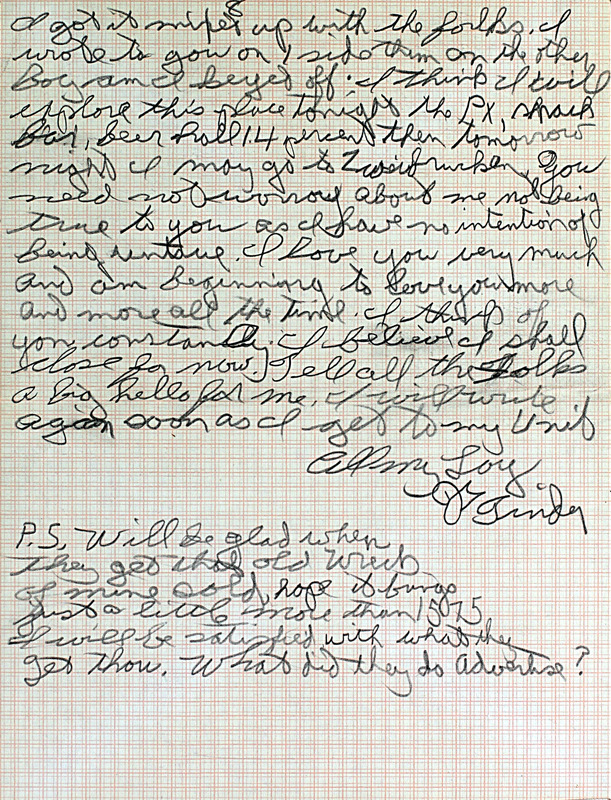 I got it mixed up with the folks. I
wrote to you on 1 side them on the other
Boy am I beyed off. I think I will
explore this place tonight the PX, snack
Bar, beer hall 14 percent then tomorrow
night I may go to Zweibrucken. You
need not worray about me not being
true to you as I have no intention of
being untrue. I love you very much
and am beginning to love you more
and more all the time. I think of
you constantly. I believe I shall
close for now. Tell all the Folks
a big hello for me. I will write
again soon as I get to my Unit
All my Love
P.S. Will be glad when
they get that old Wreck
of mine sold, hope it brings
just a little more than 15.75
I will be satisfied with what they
get thou. What did they do Advertise?